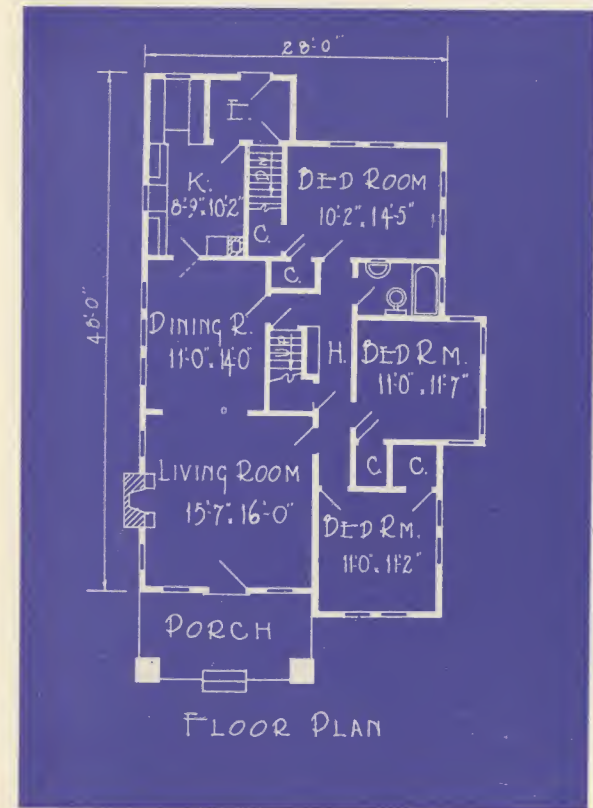 28'-0"
E.
K.
8'-9" x 10'-2"
DN
BED ROOM
10'-2" x 14'-5"
C.
C.
48'-0"
DINING R.
11'-0" x 14'-0"
UP
H.
BED RM.
11'-0" x 11'-7"
LIVING ROOM
15'-7" x 16'-0"
C.
C.
BED RM.
11'-0" x 11'-2"
PORCH
FLOOR PLAN